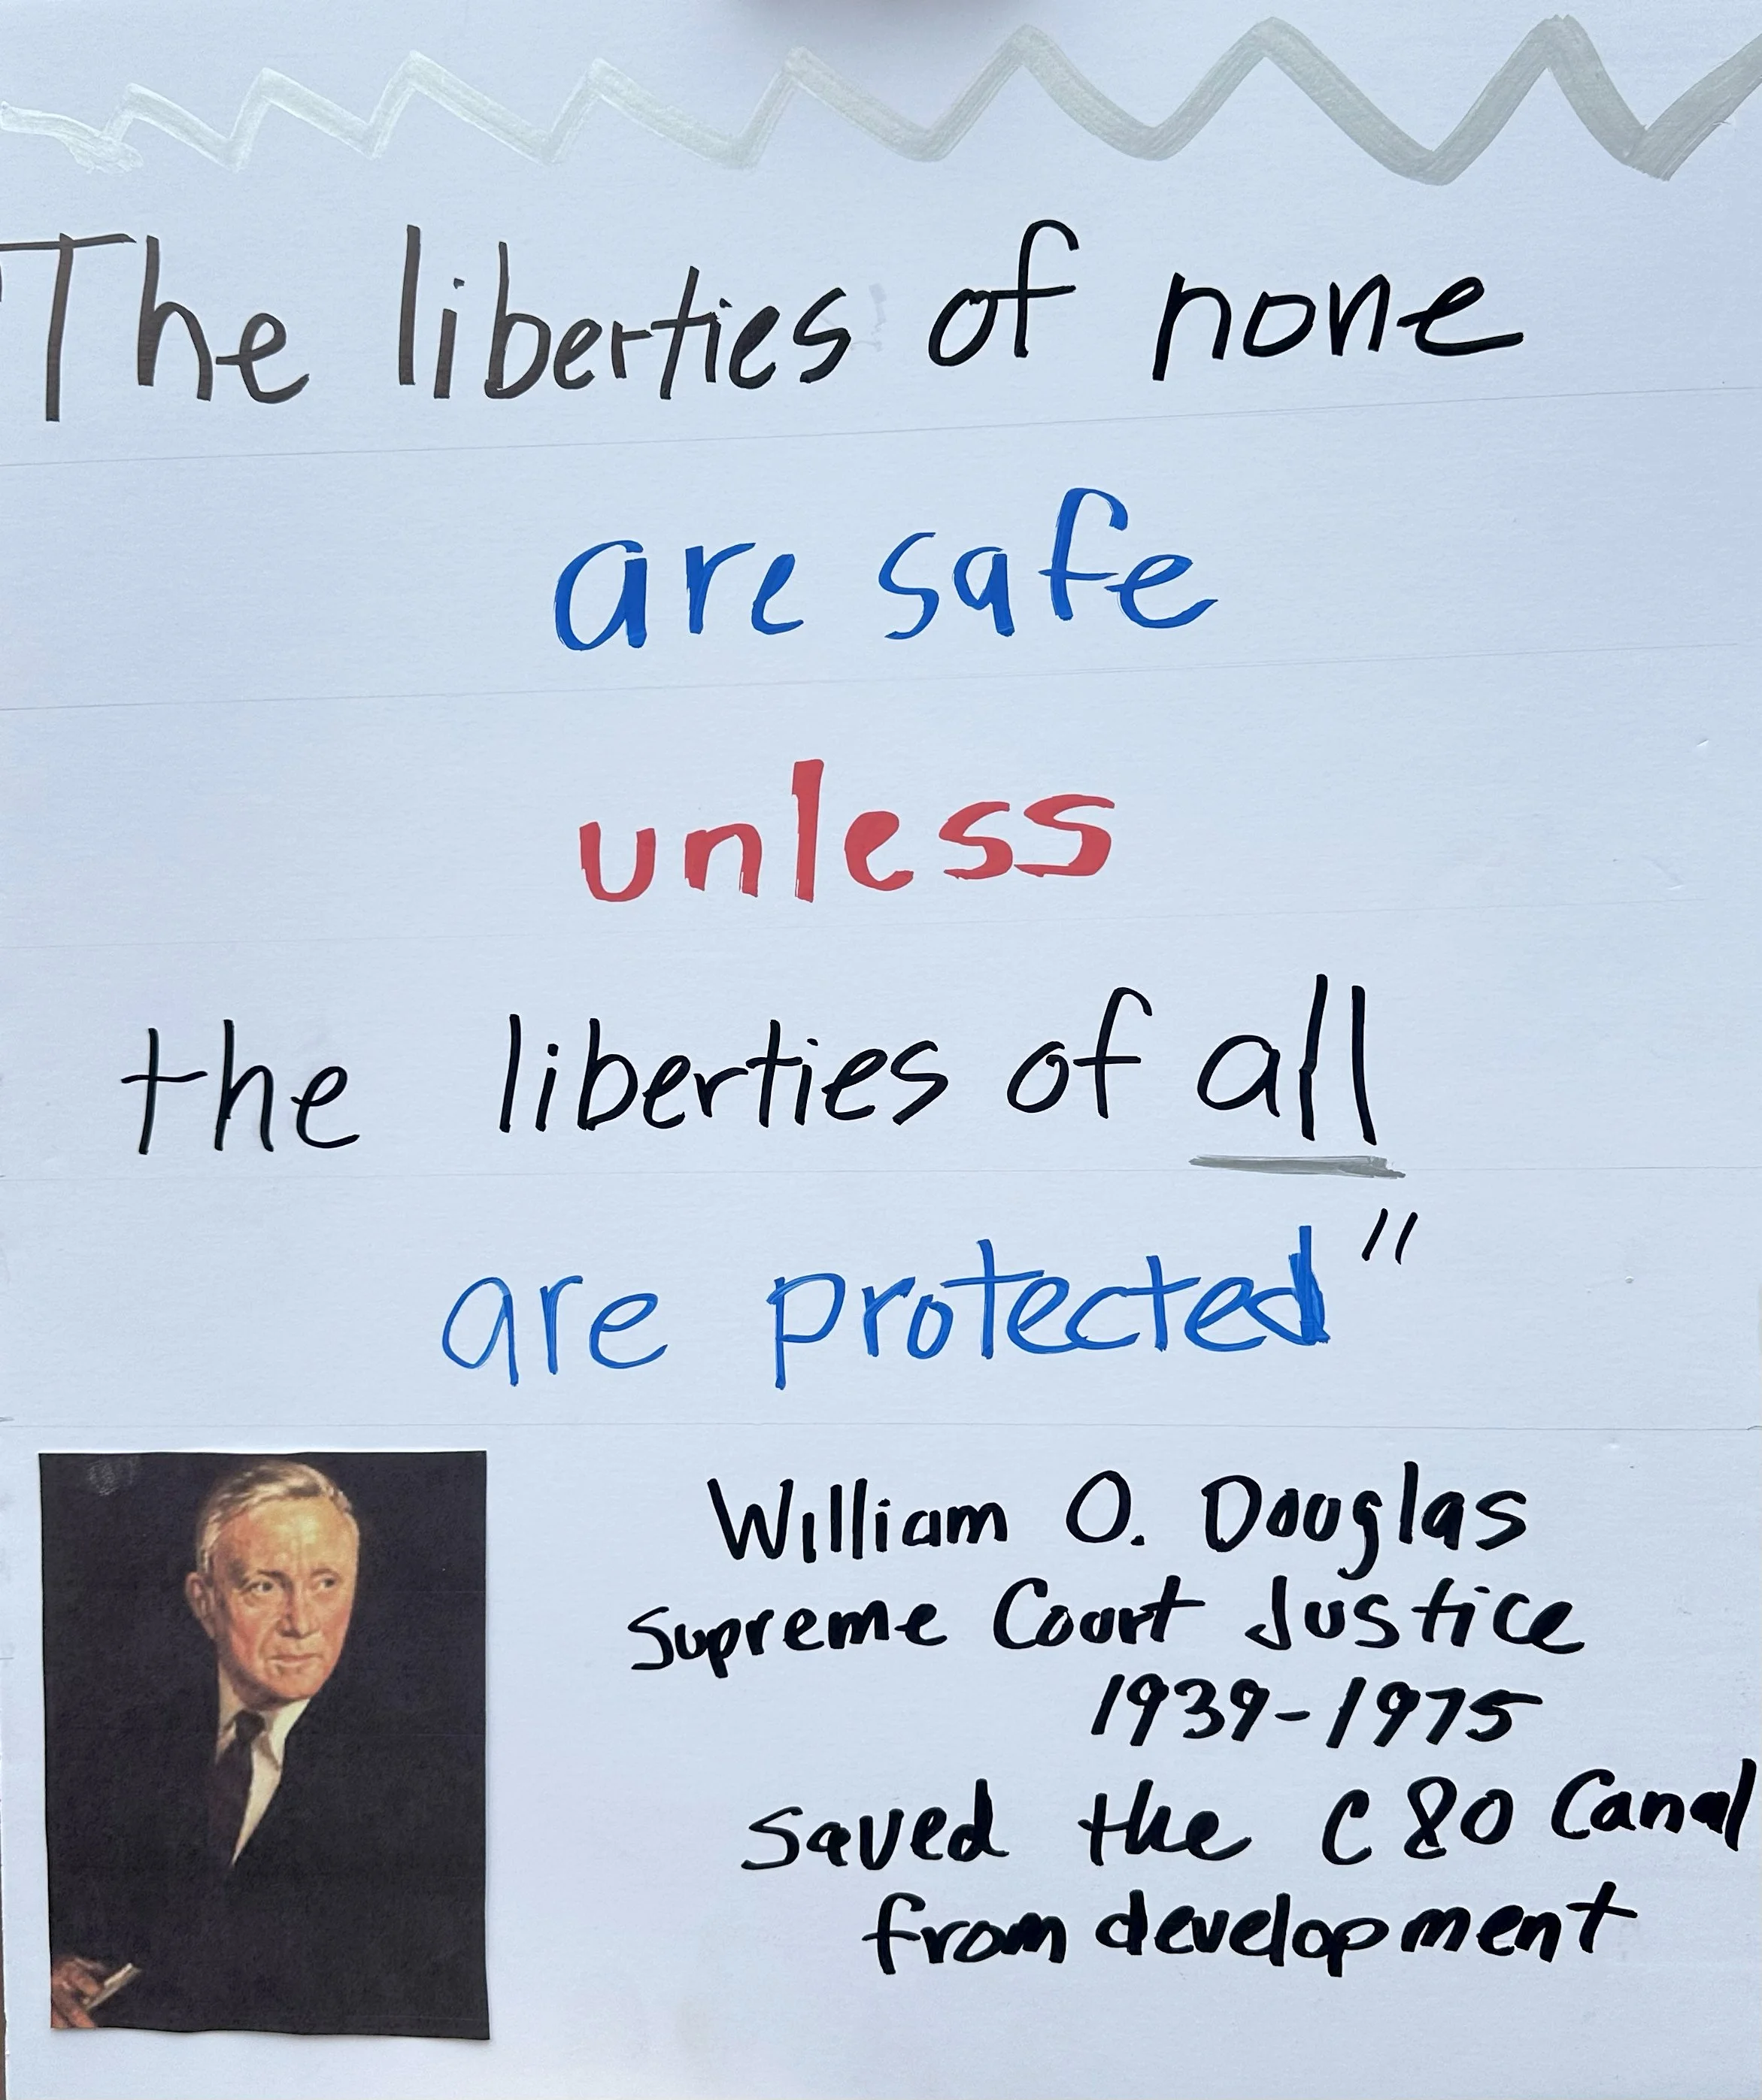 "The liberties of none
are safe
unless
the liberties of all
are protected"
William O. Douglas
Supreme Court Justice
1939-1975
saved the C&O Canal
from development